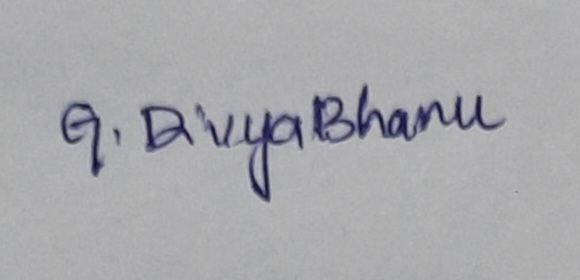 G. DivyaBhanu